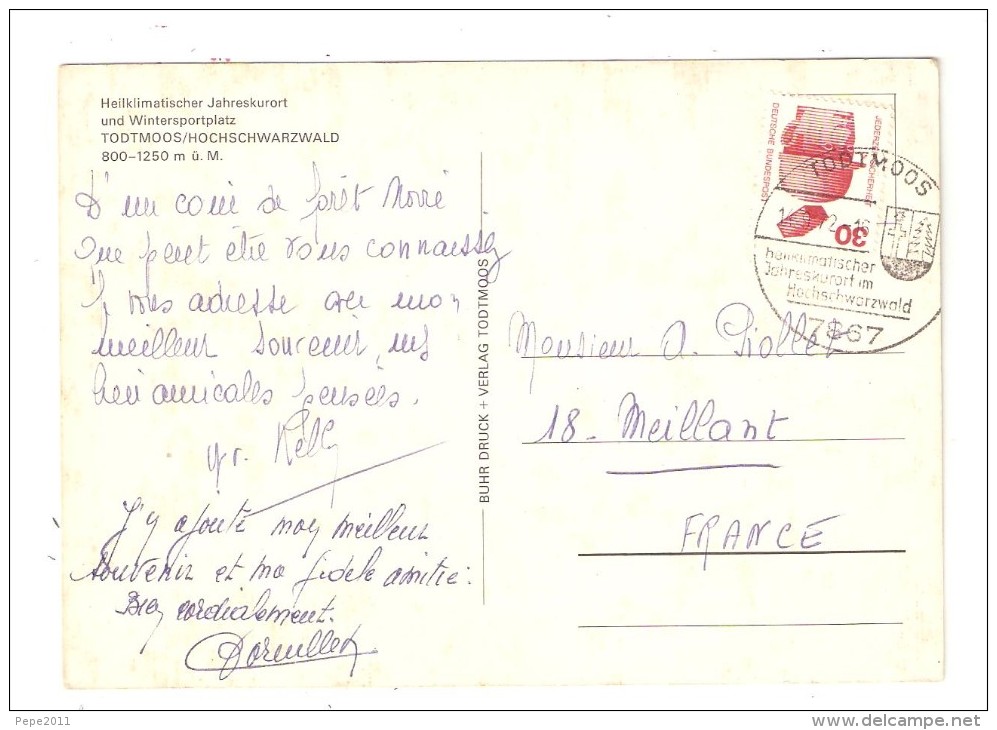 Heilklimatischer Jahreskurort
und Wintersportplatz
TODTMOOS/HOCHSCHWARZWALD
800–1250 m ü. M.
D'un coin de forêt Noire
Que peut être vous connaissez
Je vous adresse avec mon
meilleur souvenir, mes
bien amicales pensées.
J'y ajoute mon meilleur
souvenir et ma fidele amitié.
Bien cordialement.
BUHR DRUCK + VERLAG TODTMOOS
DEUTSCHE BUNDESPOST
JEDERZEIT SICHERHEIT
30
TODTMOOS
heilklimatischer
Jahreskurort im
Hochschwarzwald
7867
Monsieur A. Piollet
18 - Meillant
FRANCE
Pepe2011
www.delcampe.net